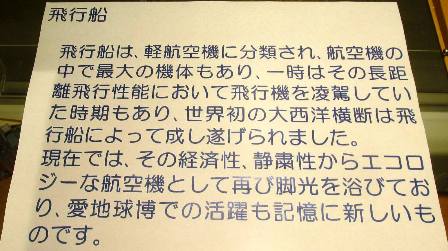 飛行船
飛行船は、軽航空機に分類され、航空機の
中で最大の機体もあり、一時はその長距
離飛行性能において飛行機を凌駕してい
た時期もあり、世界初の大西洋横断は飛
行船によって成し遂げられました。
現在では、その経済性、静粛性からエコロ
ジーな航空機として再び脚光を浴びてお
り、愛地球博での活躍も記憶に新しいも
のです。